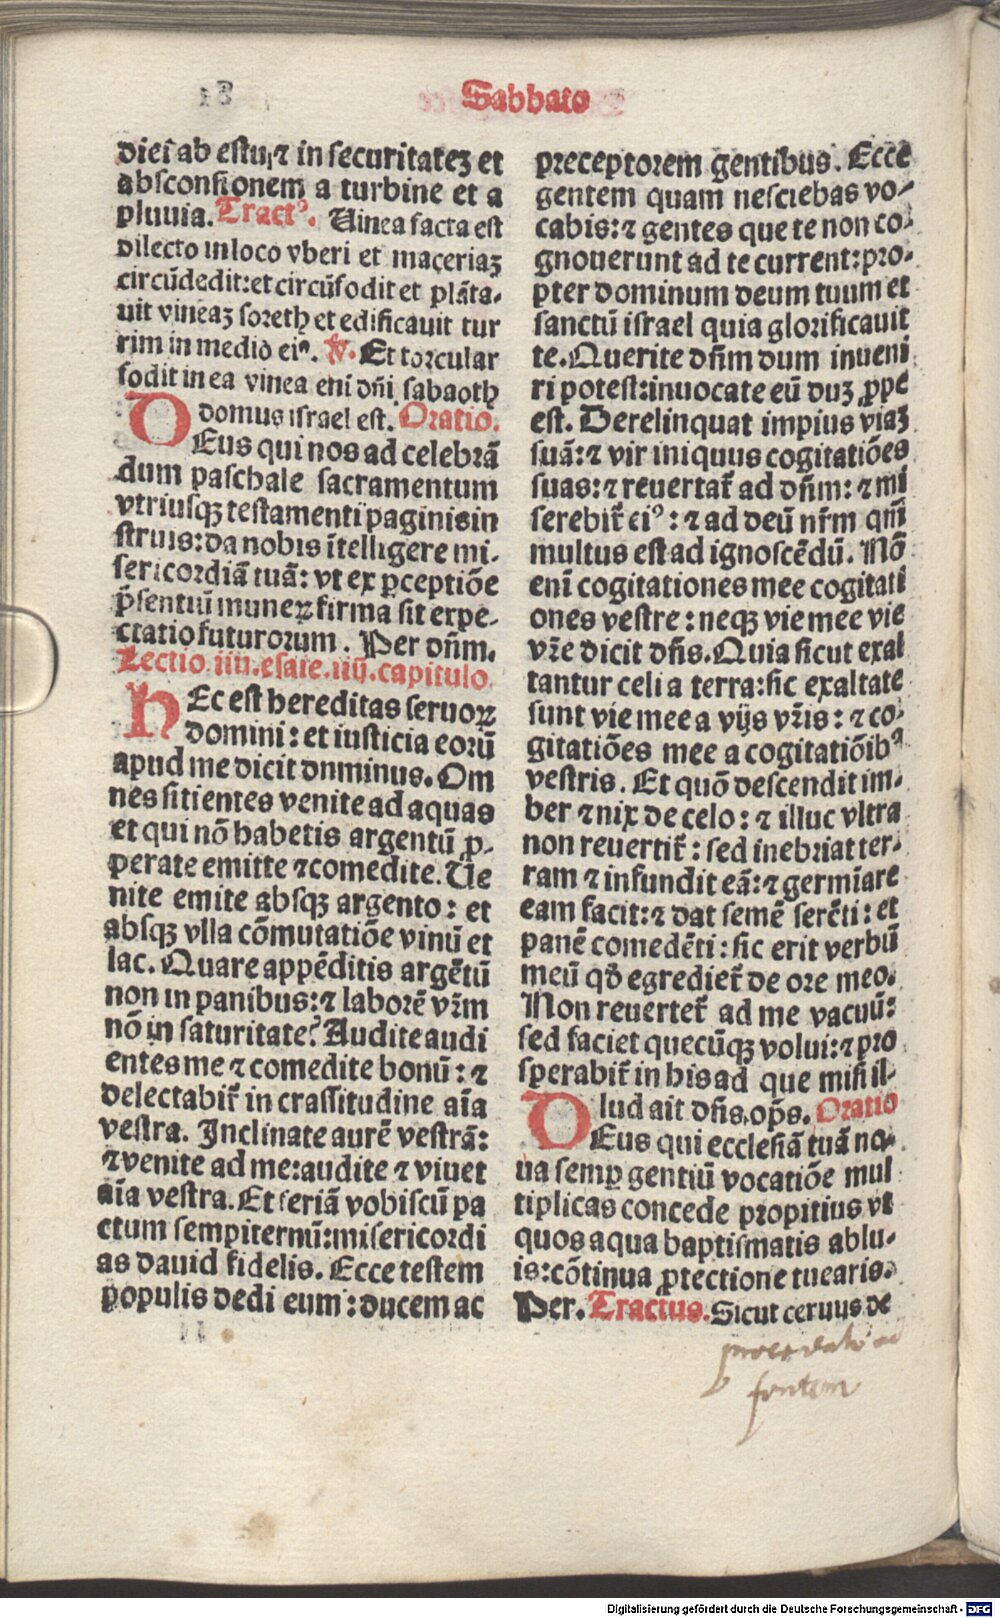 Sabbato
diei ab estu, ⁊ in securitateꝫ et
absconsionem a turbine et a
pluuia. Tractꝰ. Uinea facta est
dilecto in loco vberi et maceriaꝫ
circūdedit: et circūfodit et plāta-
uit vineaꝫ soreth et edificauit tur
rim in medio eiꝰ. ℣. Et torcular
fodit in ea vinea eni dñi sabaoth
domus israel est. Oratio.
DEus qui nos ad celebrā
dum paschale sacramentum
vtriusqꝫ testamenti paginis in
struis: da nobis ītelligere mi-
sericordiā tuā: vt ex ꝑceptiōe
p̄sentiū muneꝝ firma sit expe-
ctatio futurorum. Per dñm.
Lectio .iiii. esaie .iiij. capitulo
HEc est hereditas seruoꝝ
domini: et iusticia eorū
apud me dicit dnminus. Om
nes sitientes venite ad aquas
et qui nō habetis argentū ꝓ-
perate emitte ⁊ comedite. Ue
nite emite absqꝫ argento: et
absqꝫ vlla cōmutatiōe vinū et
lac. Quare appēditis argētū
non in panibus: ⁊ laborē vr̄m
nō in saturitate? Audite audi
entes me ⁊ comedite bonū: ⁊
delectabit̄ in crassitudine aīa
vestra. Inclinate aurē vestrā:
⁊ venite ad me: audite ⁊ viuet
aīa vestra. Et feriā vobiscū pa
ctum sempiternū: misericordi
as dauid fidelis. Ecce testem
populis dedi eum: ducem ac
preceptorem gentibus. Ecce
gentem quam nesciebas vo-
cabis: ⁊ gentes que te non co-
gnouerunt ad te current: pro-
pter dominum deum tuum et
sanctū israel quia glorificauit
te. Querite dñm dum inueni
ri potest: inuocate eū duꝫ ꝓpe
est. Derelinquat impius viaꝫ
suā: ⁊ vir iniquus cogitatiōes
suas: ⁊ reuertat̄ ad dñm: ⁊ mi
serebit̄ eiꝰ: ⁊ ad deū nr̄m qm̄
multus est ad ignoscēdū. Nō
eni cogitationes mee cogitati
ones vestre: neqꝫ vie mee vie
vr̄e dicit dñs. Quia sicut exal
tantur celi a terra: sic exaltate
sunt vie mee a vijs vr̄is: ⁊ co-
gitatiōes mee a cogitatiōibꝰ
vestris. Et quō descendit im-
ber ⁊ nix de celo: ⁊ illuc vltra
non reuertit̄: sed inebriat ter-
ram ⁊ infundit eā: ⁊ germīare
eam facit: ⁊ dat semē serēti: et
panē comedēti: sic erit verbū
meū qđ egrediet̄ de ore meo.
Non reuertet̄ ad me vacuū:
sed faciet quecūqꝫ volui: ⁊ pro
sperabit̄ in his ad que misi il-
lud ait dñs op̄s. Oratio
DEus qui ecclesiā tuā no-
ua semꝑ gentiū vocatiōe mul
tiplicas concede propitius vt
quos aqua baptismatis ablu-
is: cōtinua ꝓtectione tuearis.
Per. Tractus. Sicut ceruus de
fontem
Digitalisierung gefördert durch die Deutsche Forschungsgemeinschaft - DFG